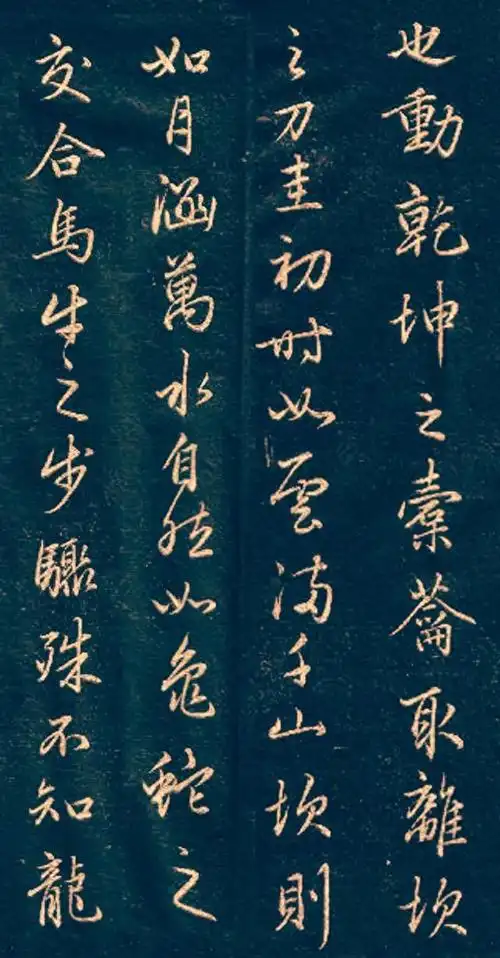 也動乾坤之橐籥取離坎
之刀圭初時如雲滿千山坎則
如月涵萬水自然如龜蛇之
交合馬牛之步驟殊不知龍